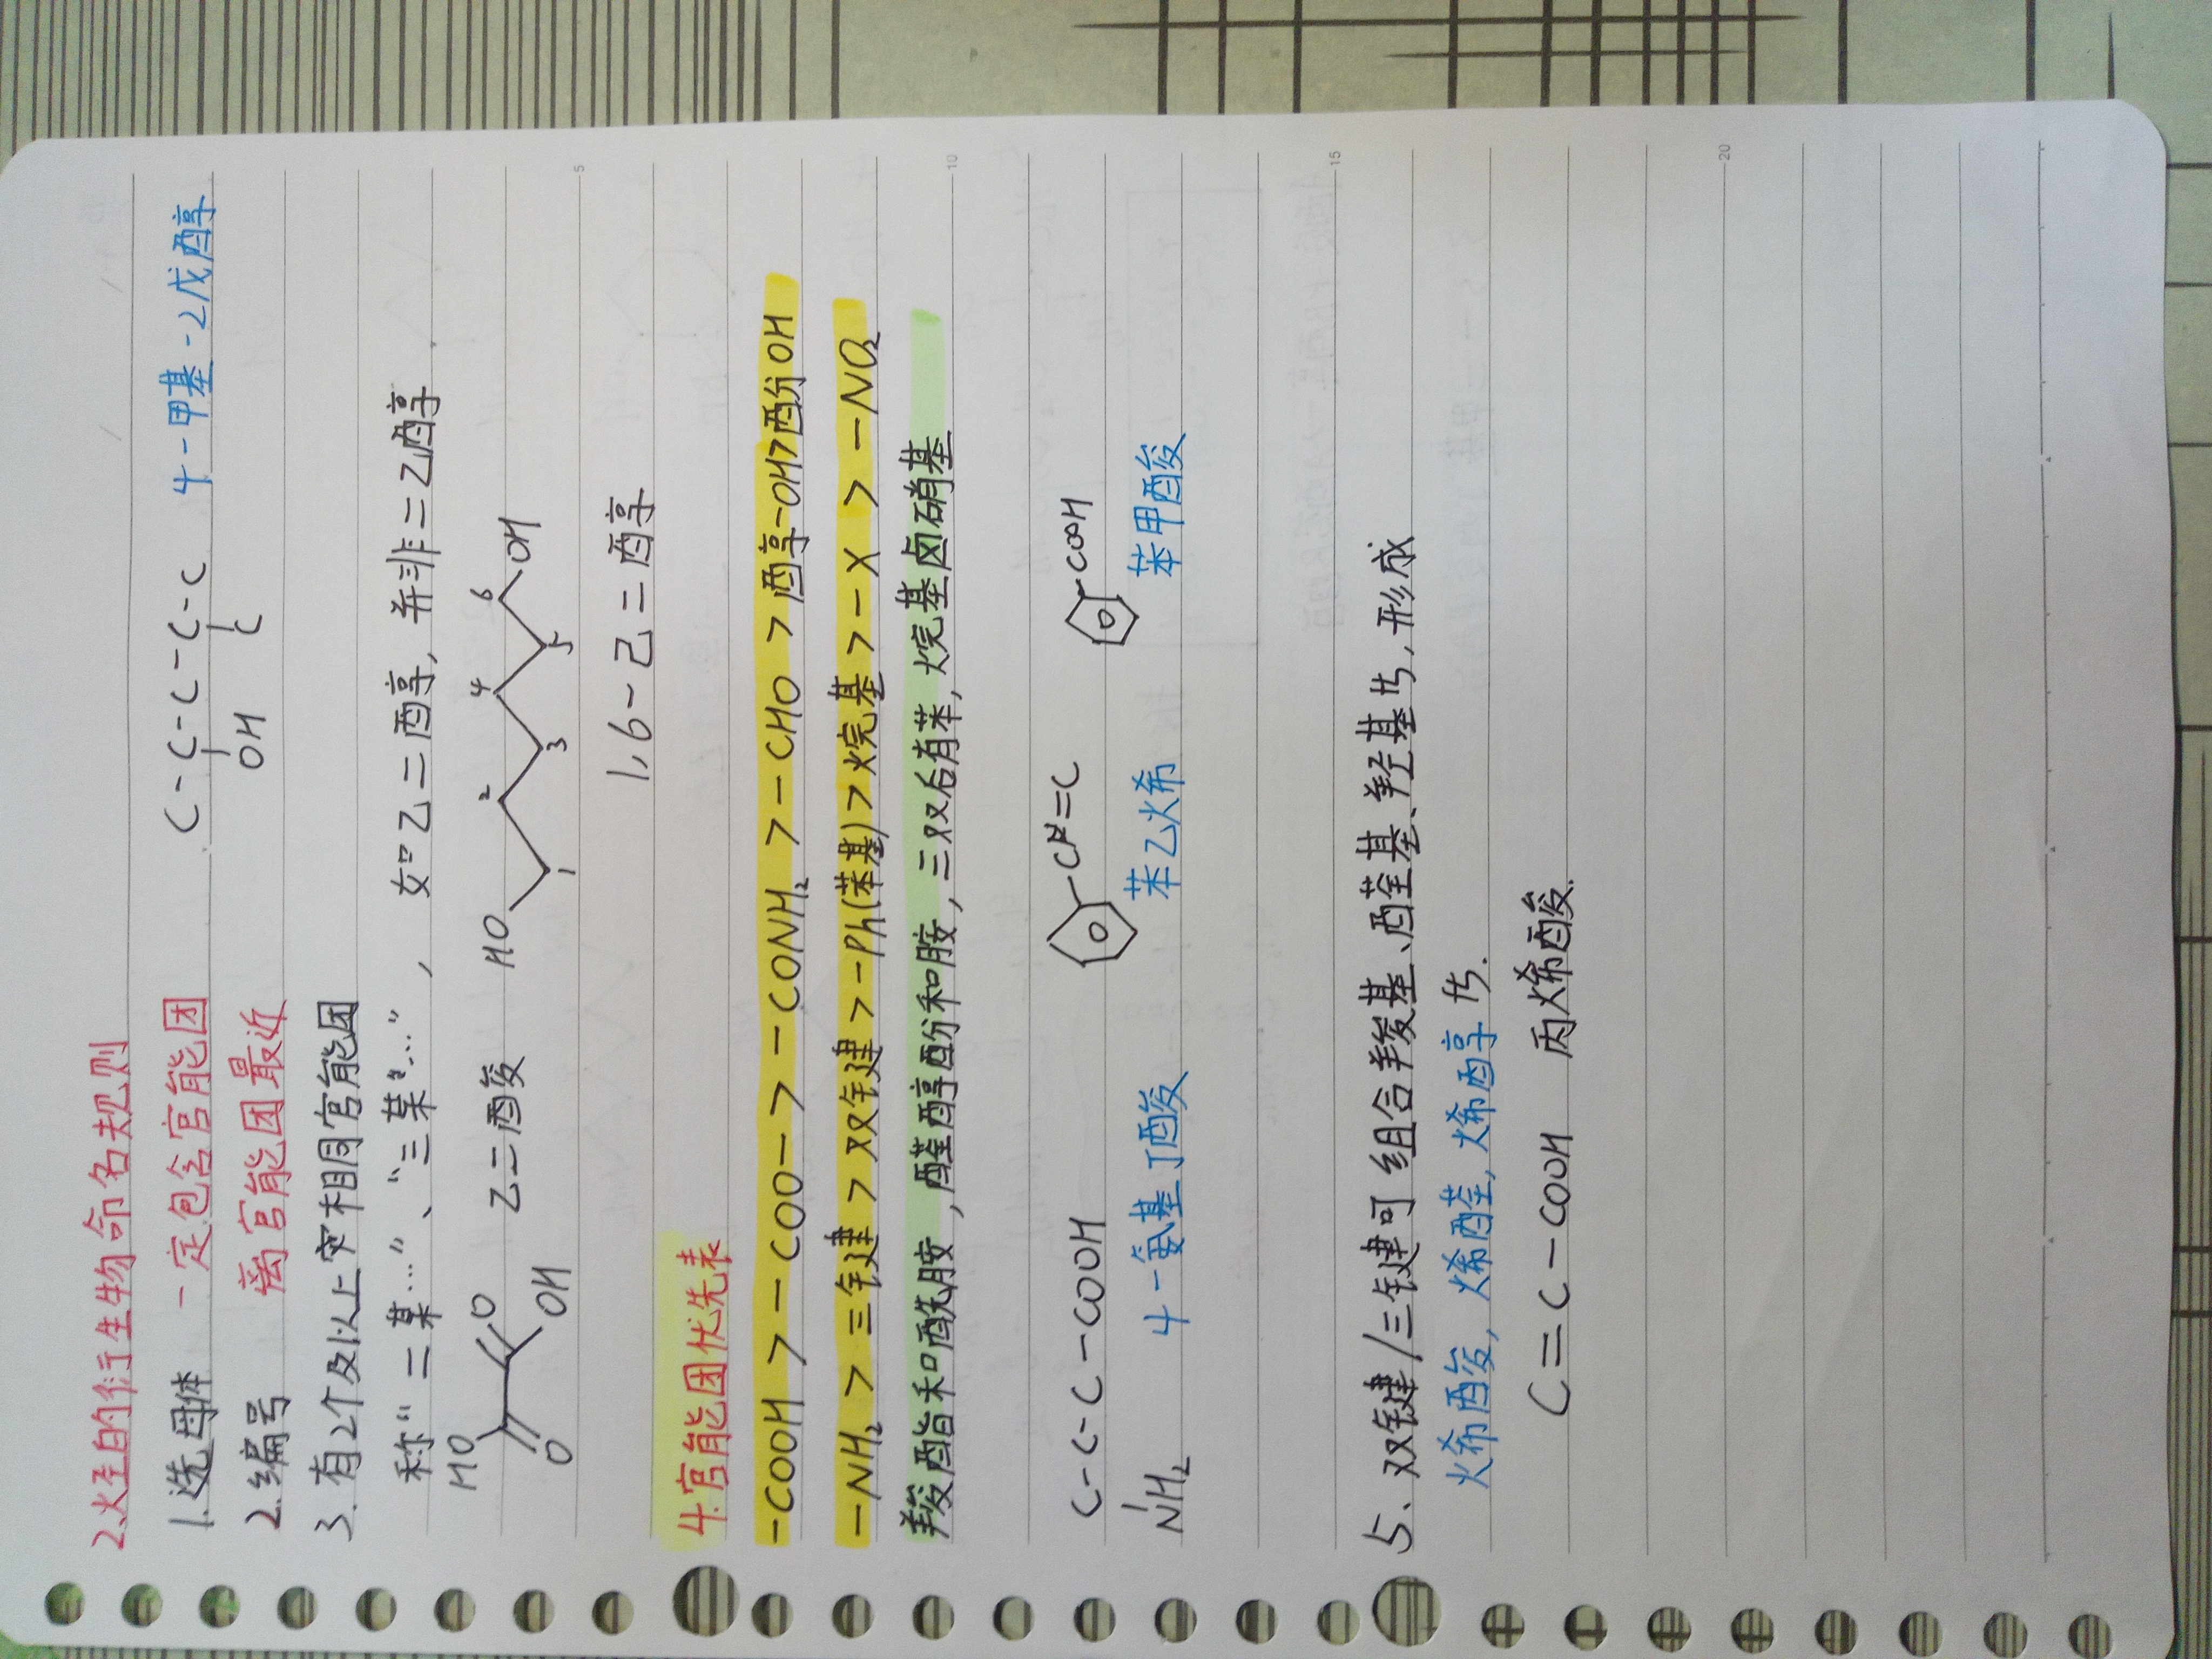 2.烃的衍生物命名规则
1.选母体 一定包含官能团 C-C-C-C-C 4-甲基-2戊醇
OH C
2.编号 离官能团最近
3.有2个及以上相同官能团
称"二某…"、"三某"…", 如"乙二醇,并非二乙醇
HO O O OH 乙二酸 HO 1 2 3 4 5 6 OH
1,6-己二醇
4.官能团优先表
-COOH > -COO- > -CONH₂ > -CHO > 醇-OH>酚OH
-NH₂ > 三键 > 双键 > -Ph(苯基) > 烷基 > -X > -NO₂
羧酯和酰胺,醛醇酚和胺,三双后有苯,烷基卤硝基
C-C-C-COOH CH=C COOH
NH₂ 4-氨基丁酸 苯乙烯 苯甲酸
5、双键/三键可组合羧基、醛基、羟基等,形成
烯酸,烯醛,烯醇等.
C=C-COOH 丙烯酸.
5
10
15
20